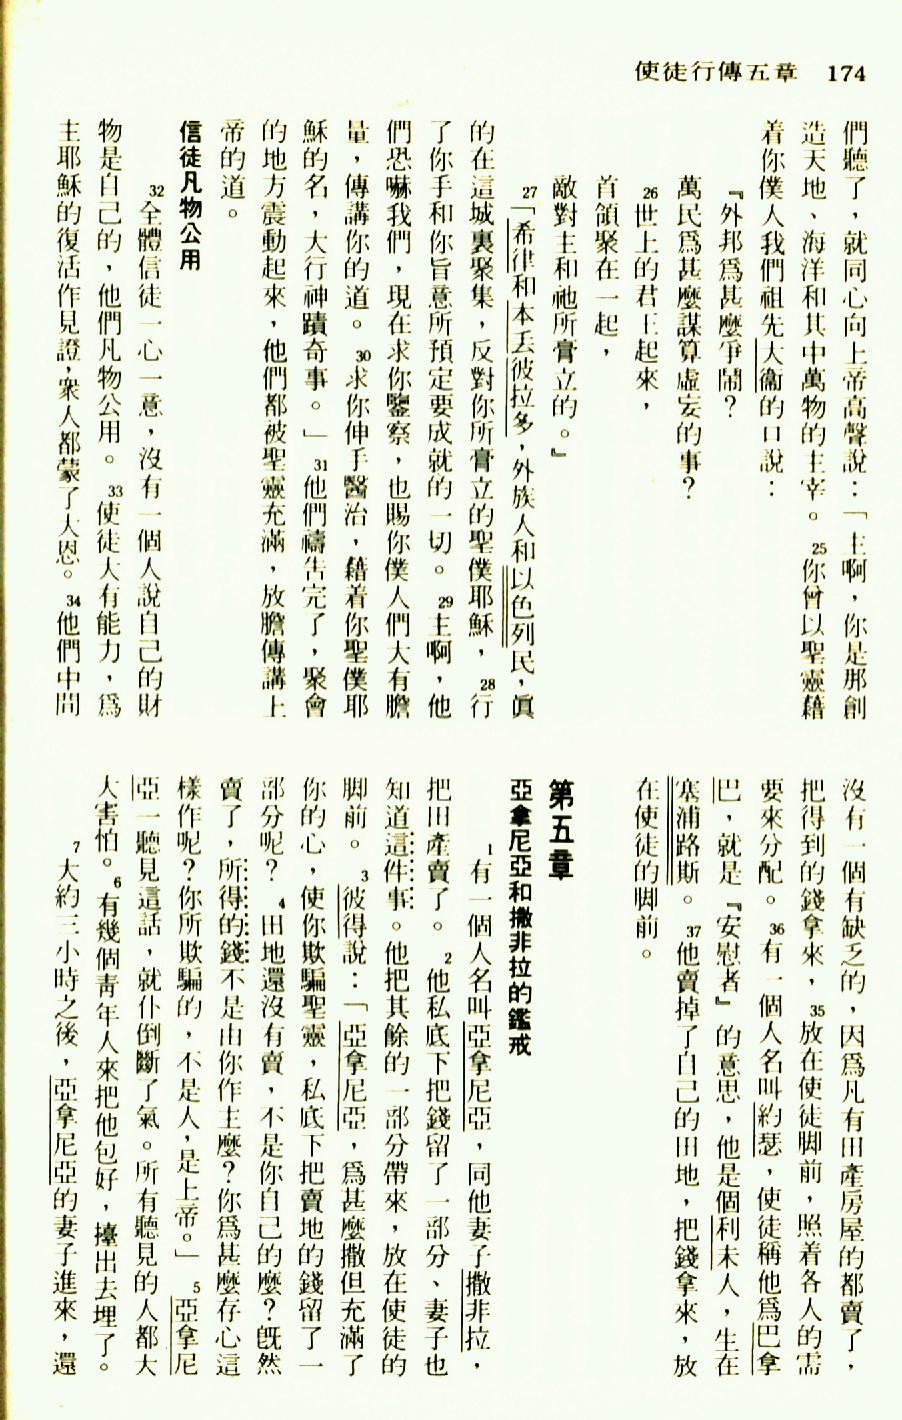 使徒行傳五章 174
們聽了，就同心向上帝高聲說：「主啊，你是那創
造天地、海洋和其中萬物的主宰。25你曾以聖靈藉
着你僕人我們祖先大衞的口說：
『外邦爲甚麼爭鬧？
萬民爲甚麼謀算虛妄的事？
26世上的君王起來，
首領聚在一起，
敵對主和祂所膏立的。』
27「希律和本丢彼拉多，外族人和以色列民，眞
的在這城裏聚集，反對你所膏立的聖僕耶穌，28行
了你手和你旨意所預定要成就的一切。29主啊，他
們恐嚇我們，現在求你鑒察，也賜你僕人們大有膽
量，傳講你的道。30求你伸手醫治，藉着你聖僕耶
穌的名，大行神蹟奇事。」31他們禱告完了，聚會
的地方震動起來，他們都被聖靈充滿，放膽傳講上
帝的道。
信徒凡物公用
32全體信徒一心一意，沒有一個人說自己的財
物是自己的，他們凡物公用。33使徒大有能力，爲
主耶穌的復活作見證，衆人都蒙了大恩。34他們中間
沒有一個有缺乏的，因爲凡有田產房屋的都賣了，
把得到的錢拿來，35放在使徒脚前，照着各人的需
要來分配。36有一個人名叫約瑟，使徒稱他爲巴拿
巴，就是『安慰者』的意思，他是個利未人，生在
塞浦路斯。37他賣掉了自己的田地，把錢拿來，放
在使徒的脚前。
第五章
亞拿尼亞和撒非拉的鑑戒
1有一個人名叫亞拿尼亞，同他妻子撒非拉，
把田產賣了。2他私底下把錢留了一部分、妻子也
知道這件事。他把其餘的一部分帶來，放在使徒的
脚前。3彼得說：「亞拿尼亞，爲甚麼撒但充滿了
你的心，使你欺騙聖靈，私底下把賣地的錢留了一
部分呢？4田地還沒有賣，不是你自己的麼？旣然
賣了，所得的錢不是由你作主麼？你爲甚麼存心這
樣作呢？你所欺騙的，不是人，是上帝。」5亞拿尼
亞一聽見這話，就仆倒斷了氣。所有聽見的人都大
大害怕。6有幾個靑年人來把他包好，擡出去埋了。
7大約三小時之後，亞拿尼亞的妻子進來，還